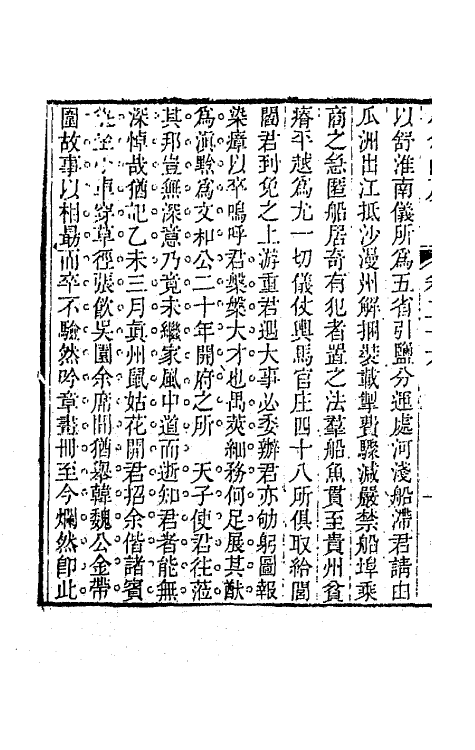 以舒淮南儀所為五省引鹽分運處河淺船滯君請由
瓜洲出江抵沙漫州解捆裝載掣費驟減嚴禁船埠乘
商之急匿船居奇有犯者置之法羣船魚貫至貴州貧
瘠平越為尤一切儀仗輿馬官庄四十八所俱取給閭
閻君到免之上游重君遇大事必委辦君亦劬躬圖報
染瘴以卒嗚呼君槃槃大才也禺筴細務何足展其猷
為滇黔為文和公二十年開府之所　天子使君往蒞
其邦豈無深意乃竟未繼家風中道而逝知君者能無
深悼哉猶記乙未三月真州鼠姑花開君招余偕諸賓
從至小車穿草徑張飲吳園余席間猶舉韓魏公金帶
圍故事以相勗而卒不驗然吟章畫冊至今爛然即此